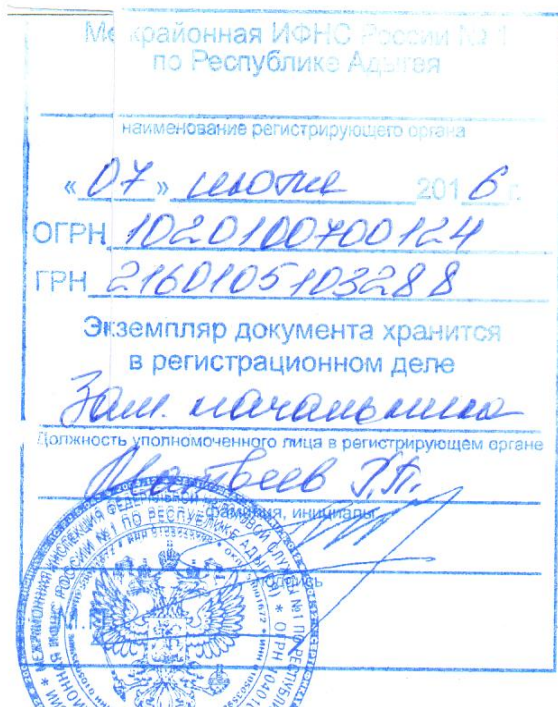 Межрайонная ИФНС России № 1
по Республике Адыгея
наименование регистрирующего органа
«07» июля 2016 г.
ОГРН 1020100700124
ГРН 2160105103288
Экземпляр документа хранится
в регистрационном деле
Зам. начальника
Должность уполномоченного лица в регистрирующем органе
Матвеев
фамилия, инициалы
подпись
М.П.